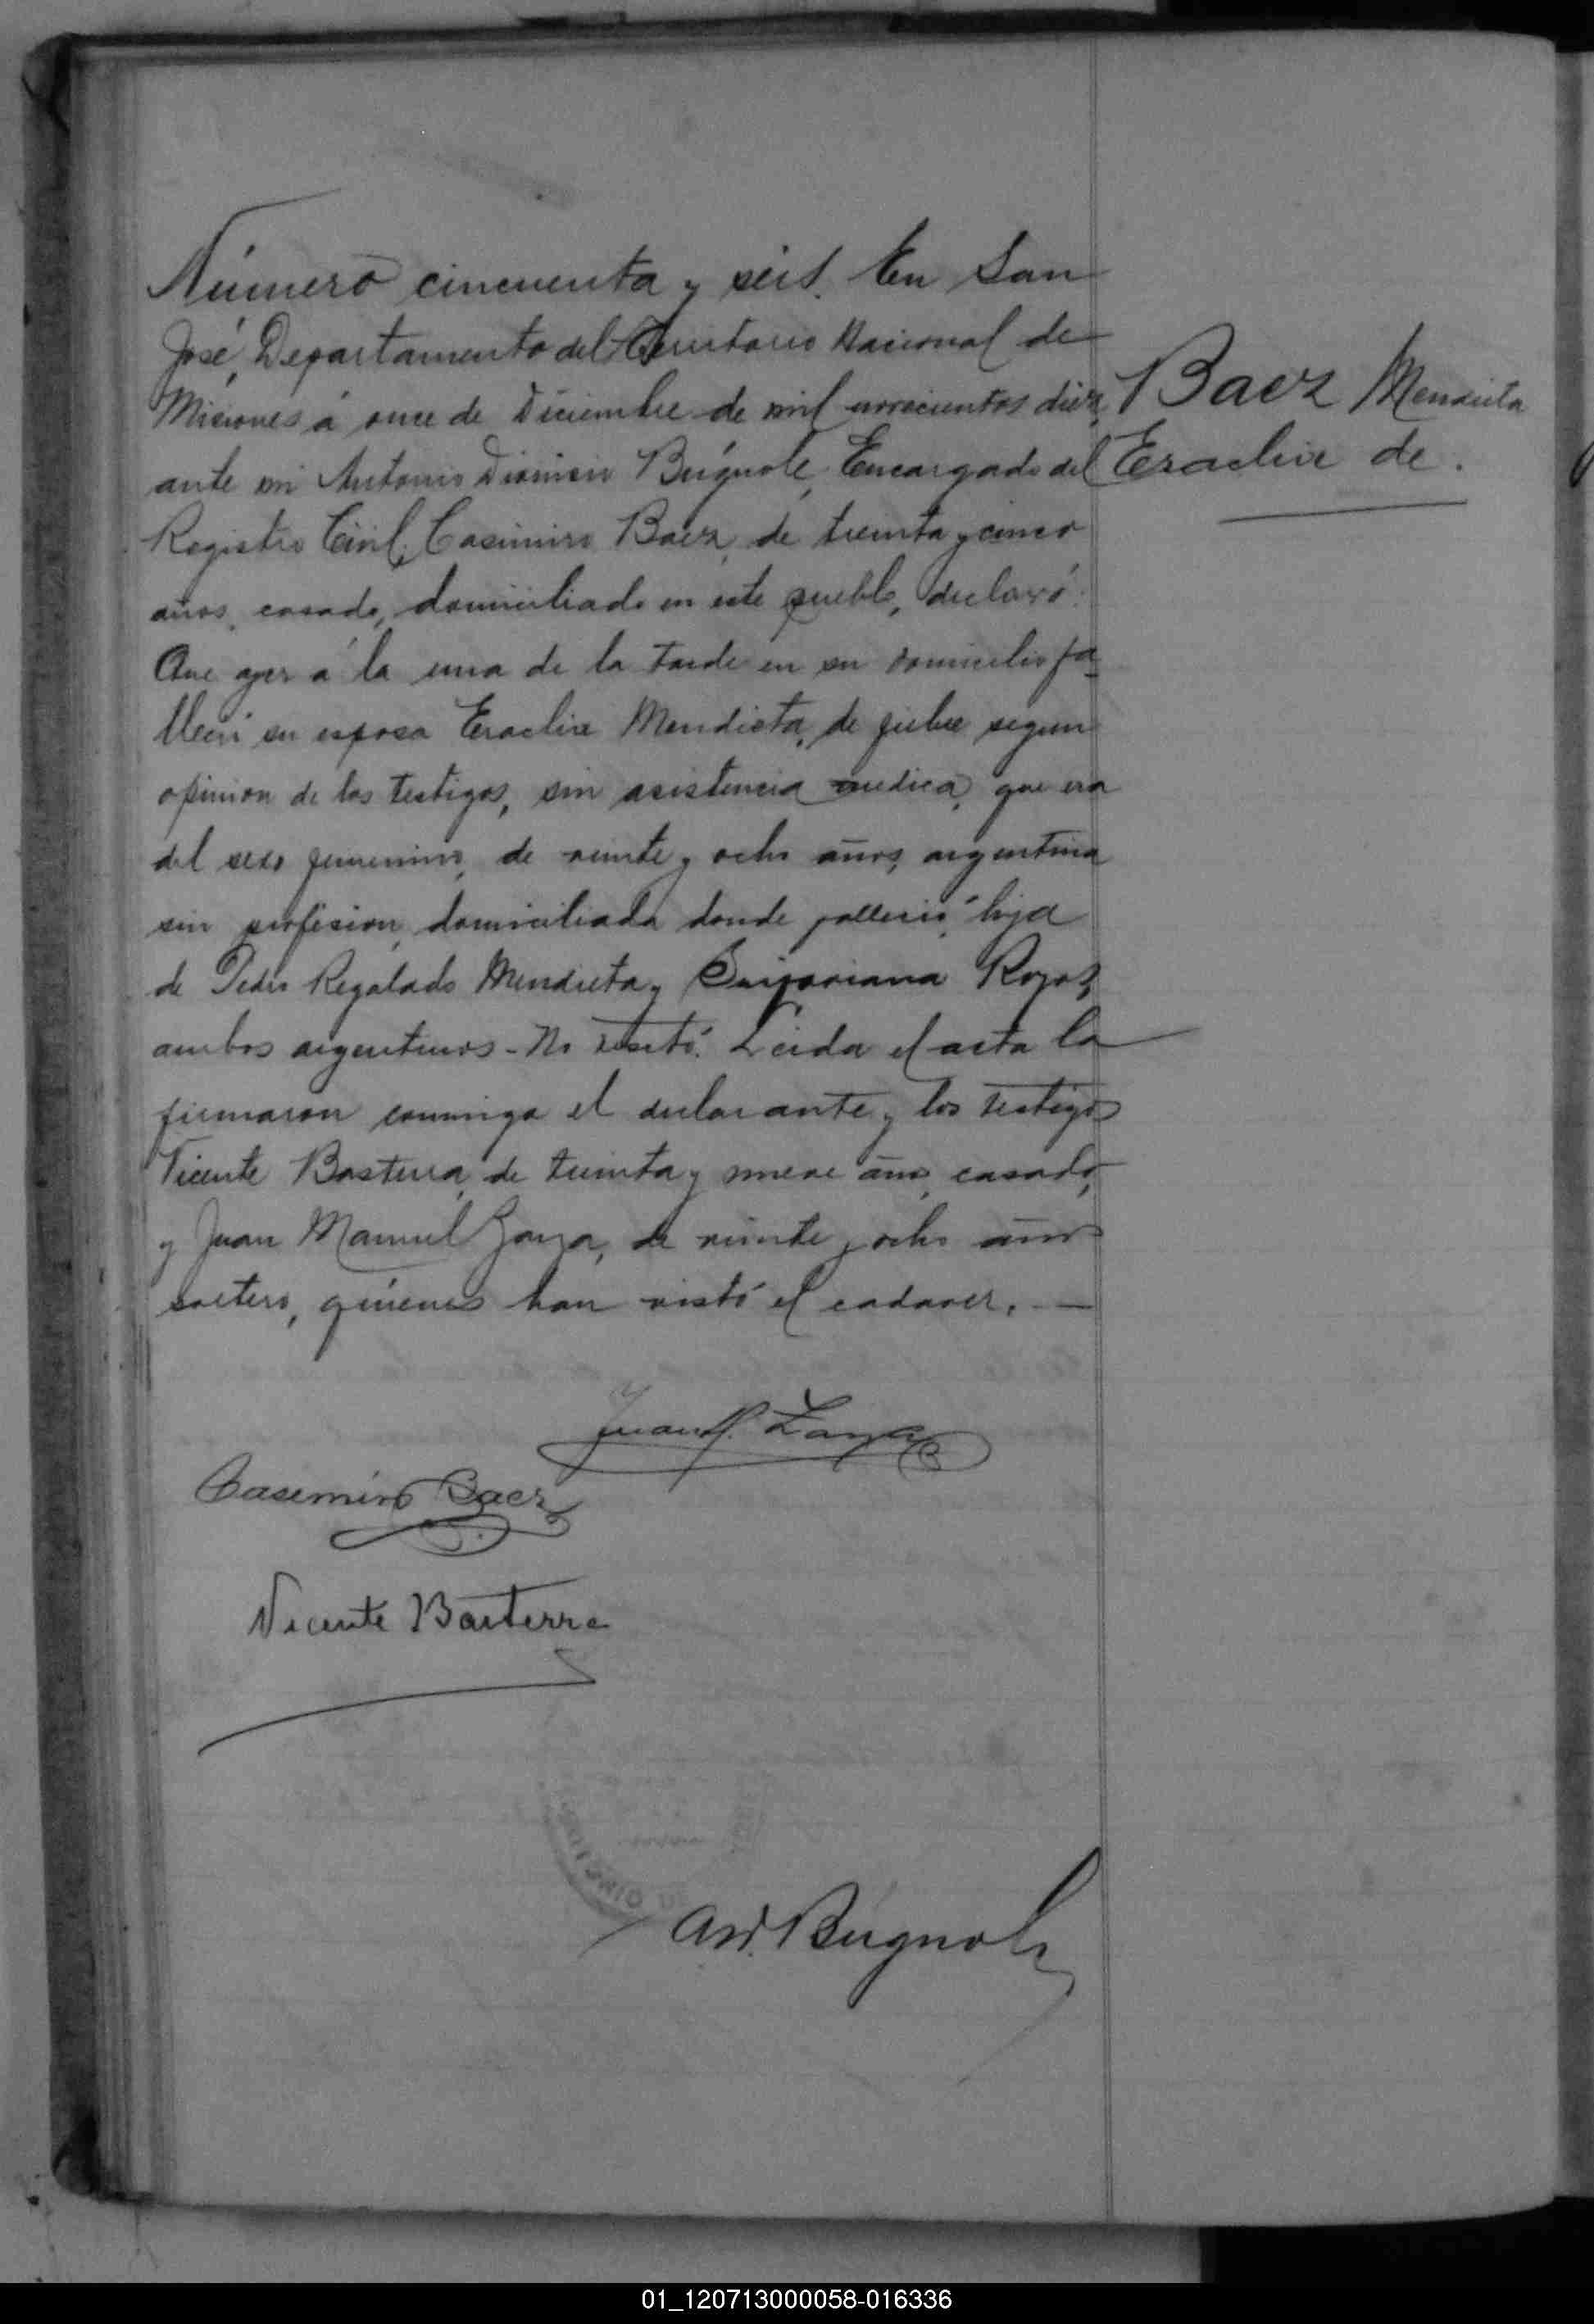 Número cincuenta y seis. En San
José, Departamento del Territorio Nacional de
Misiones á once de Diciembre de mil novecientos diez,
ante mi Antonio Dionisio Búgnole, Encargado del
Registro Civil, Casimiro Baez, de treinta y cinco
años, casado, domiciliado en este pueblo, declaró:
Que ayer á la una de la tarde en su domicilio fa-
lleció su esposa Eraclia Mendieta, de fiebre segun
opinion de los testigos, sin asistencia medica, que era
del sexo femenino, de veinte y ocho años, argentina
sin profesion, domiciliada donde falleció, hija
de Pedro Regalado Mendieta y Rojas,
ambos argentinos - No testó. Leida el acta la
firmaron conmigo el declarante y los testigos
Vicente Basterra, de treinta y nueve años, casado,
y Juan Manuel Zaya, de veinte y ocho años
soltero, quienes han visto el cadaver. —
Baez Mendieta
Eraclia de.
Juan M. Zaya
Casemiro Baez
Vicente Basterra
AD. Búgnole
01_120713000058-016336